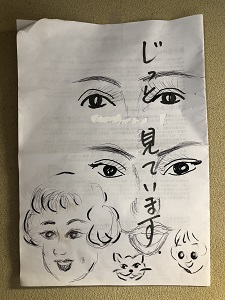 じっと見ています。